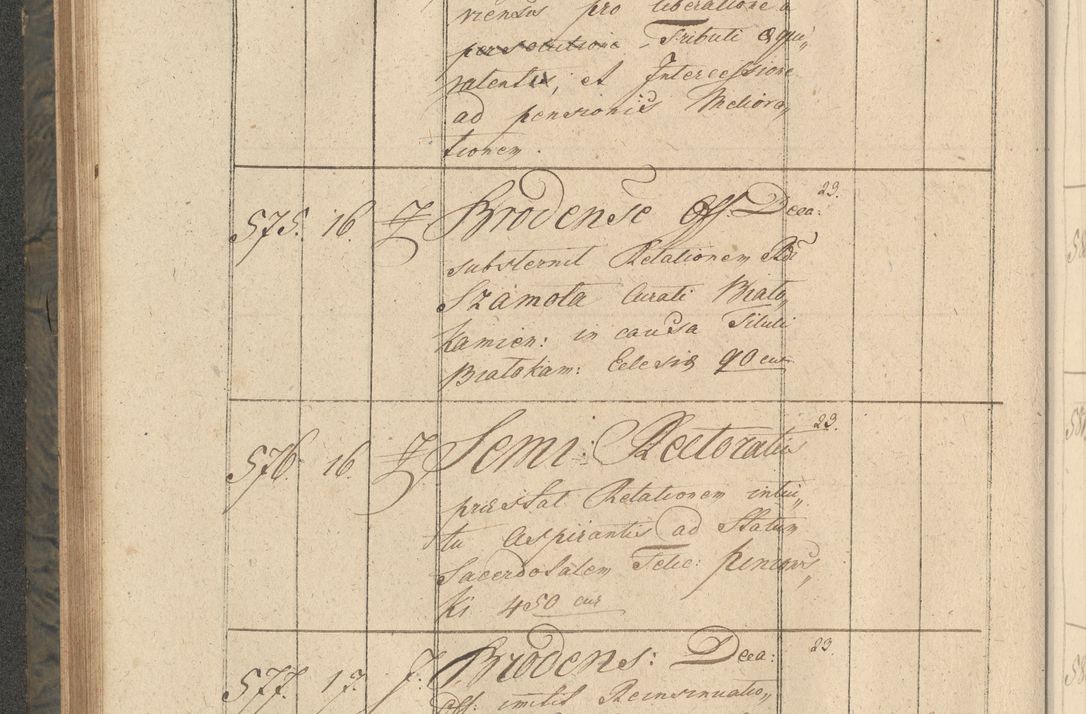 viensis pro liberatione a
persolutione Tributi aqui„
valentis, et Intercessione
ad pensionis Meliora„
tionem.
575. 16. J Brodense Off. Deca: 23.
substernit Relationem Rdi
Szamota Curati Biało„
kamien: in causa Tituli
Białokam: Eclesiæ 90 cur
576. 16. J Semi: Rectoratus 23.
præstat Relationem intui„
tu Aspirantis ad Statum
Sacerdotalem Felic: Peniows„
ki 450 cur
577. 17. J. Brodens: Deca: 23.
Off. imitit Reinsinuatio„